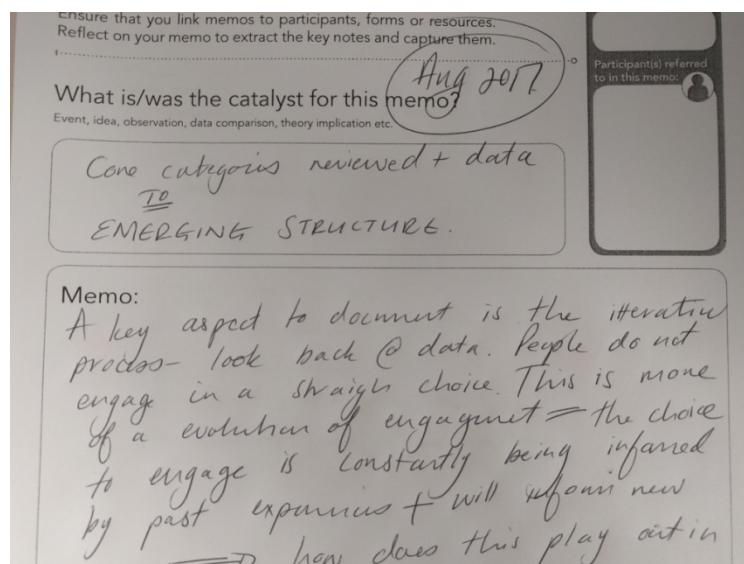 Ensure that you link memos to participants, forms or resources.
Reflect on your memo to extract the key notes and capture them.
Aug 2017
Participant(s) referred
to in this memo:
What is/was the catalyst for this memo?
Event, idea, observation, data comparison, theory implication etc.
Core categories reviewed + data
TO
EMERGING STRUCTURE.
Memo:
A key aspect to document is the itterative
process - look back @ data. People do not
engage in a straigh choice. This is more
of a evolution of engagment = the choice
to engage is constantly being informed
by past experiences + will inform new
how does this play out in